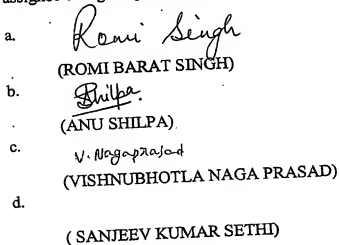 a. Romi Singh
(ROMI BARAT SINGH)
b. Shilpa.
(ANU SHILPA)
c. V. Nagaprasad
(VISHNUBHOTLA NAGA PRASAD)
d.
( SANJEEV KUMAR SETHI)